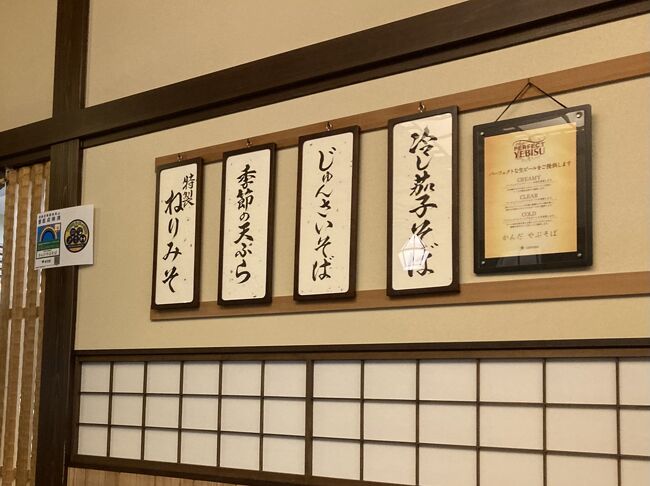 冷し茄子そば
じゅんさいそば
季節の天ぷら
特製
ねりみそ
PERFECT
YEBISU
パーフェクトな生ビールをご提供します
CREAMY
CLEAR
COLD
かんだ やぶそば